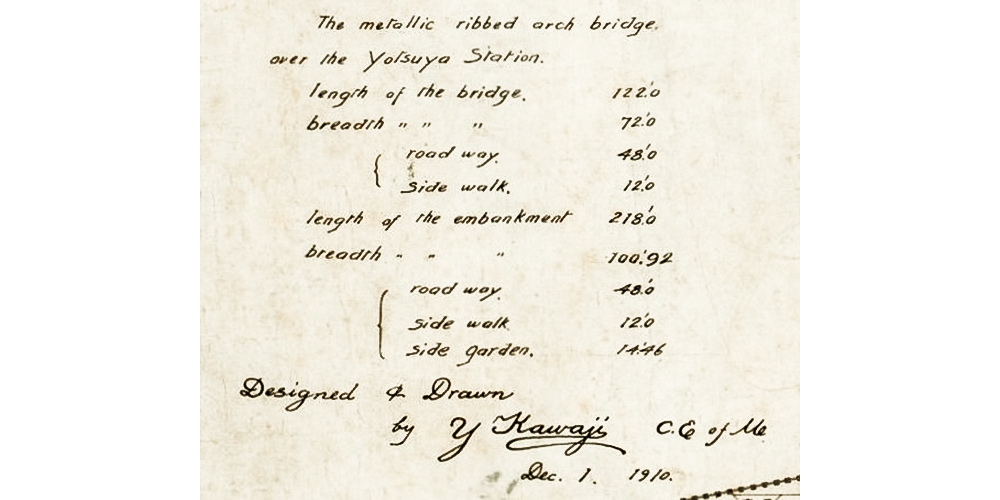 The metallic ribbed arch bridge.
over the Yotsuya Station.
length of the bridge. 122.'0
breadth " " " 72.'0
road way. 48.'0
side walk. 12.'0
length of the embankment 218.'0
breadth " " " 100.'92
road way. 48.'0
side walk 12.'0
side garden. 14.'46
Designed & Drawn
by Y Kawaji C.E of Me
Dec. 1. 1910.